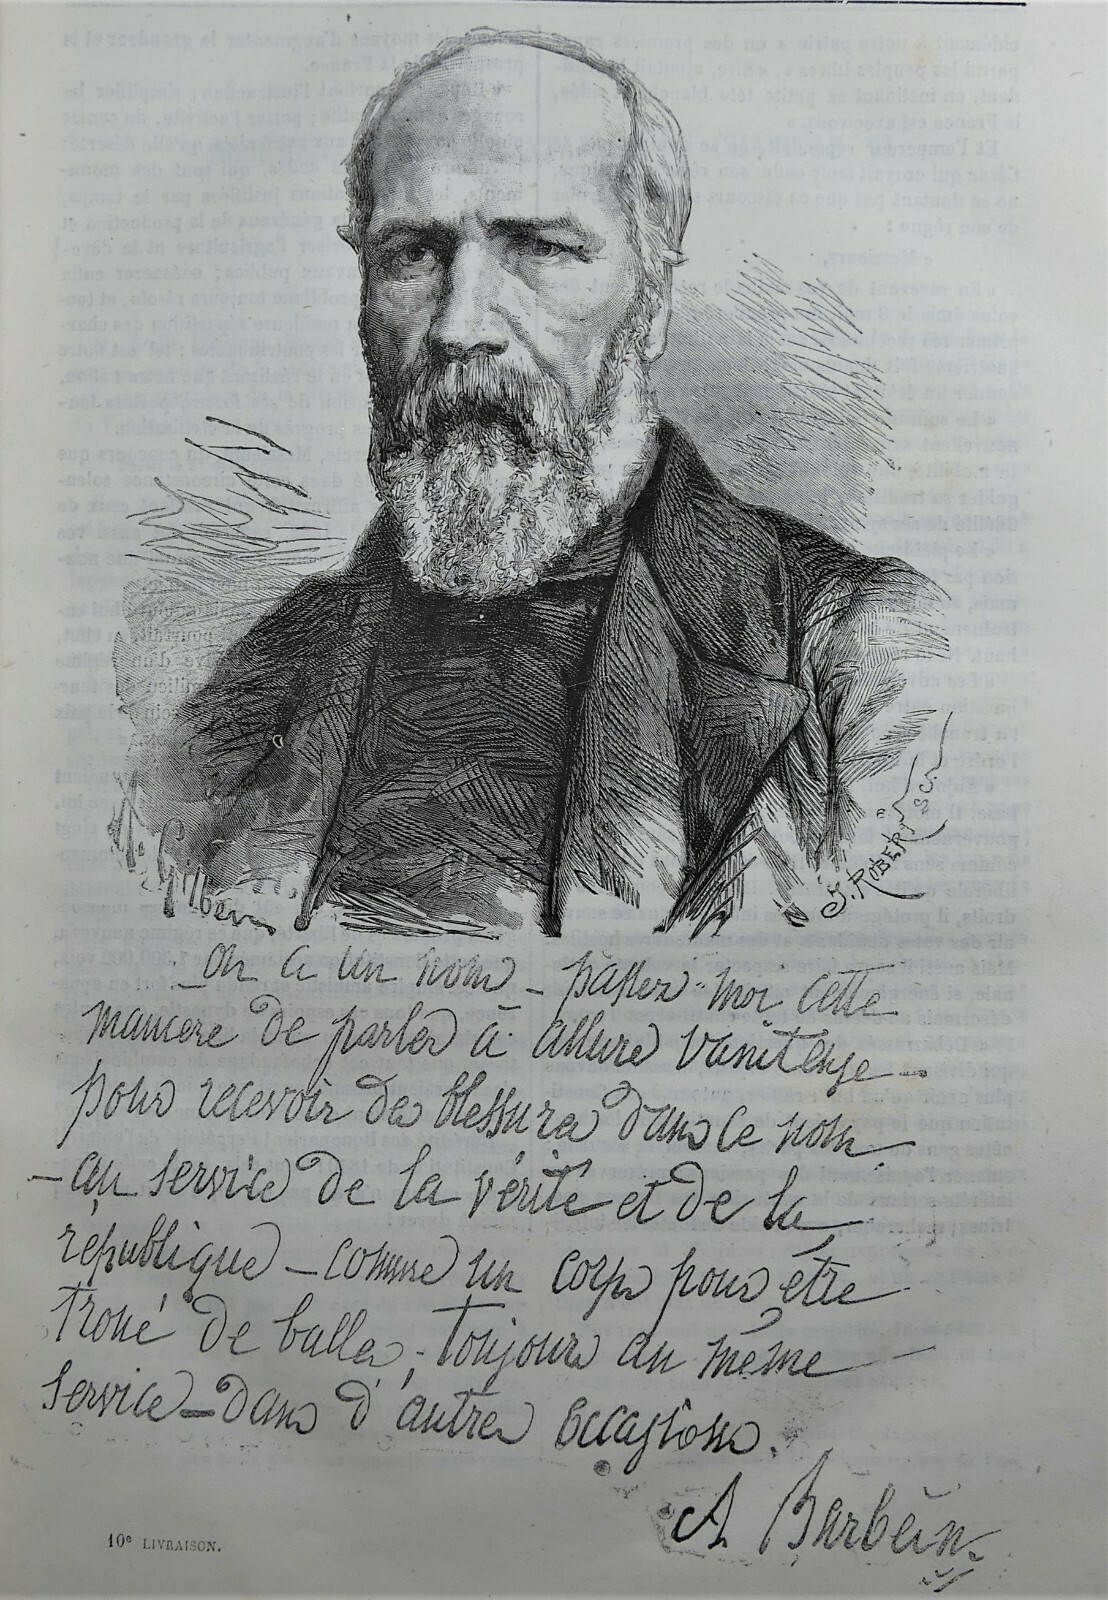 A. Gilbert
J. ROBERT S.
_ on a un nom _ passez-moi cette
maniere de parler à allure vaniteuse _
pour recevoir des blessures dans ce nom
_ au service de la vérité et de la
république _ comme un corps pour être
troué de balles, toujours au même
service _ dans d'autres occasions.
A Barbès
10e LIVRAISON.